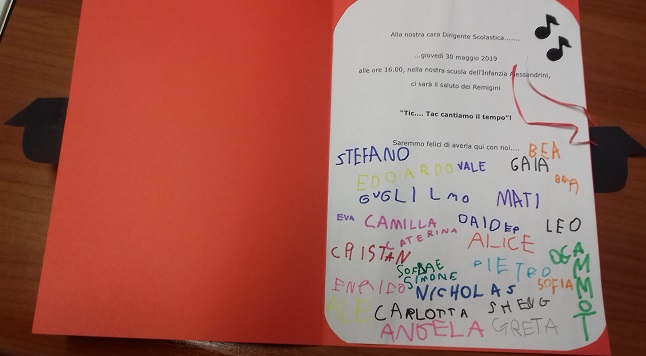 Alla nostra cara Dirigente Scolastica.......
...giovedì 30 maggio 2019
alle ore 16.00, nella nostra scuola dell'Infanzia Alessandrini,
ci sarà il saluto dei Remigini
"Tic.... Tac cantiamo il tempo"!
Saremmo felici di averla qui con noi....
STEFANO
BEA
EDOARDO VALE GAIA
BEA
GUGLILMO MATI
EVA CAMILLA DAIDER LEO
CATERINA
CRISTAN ALICE
SIMONE PIETRO
ENRIDO NICHOLAS SOFIA
ALE CARLOTTA SHENG
ANGELA GRETA